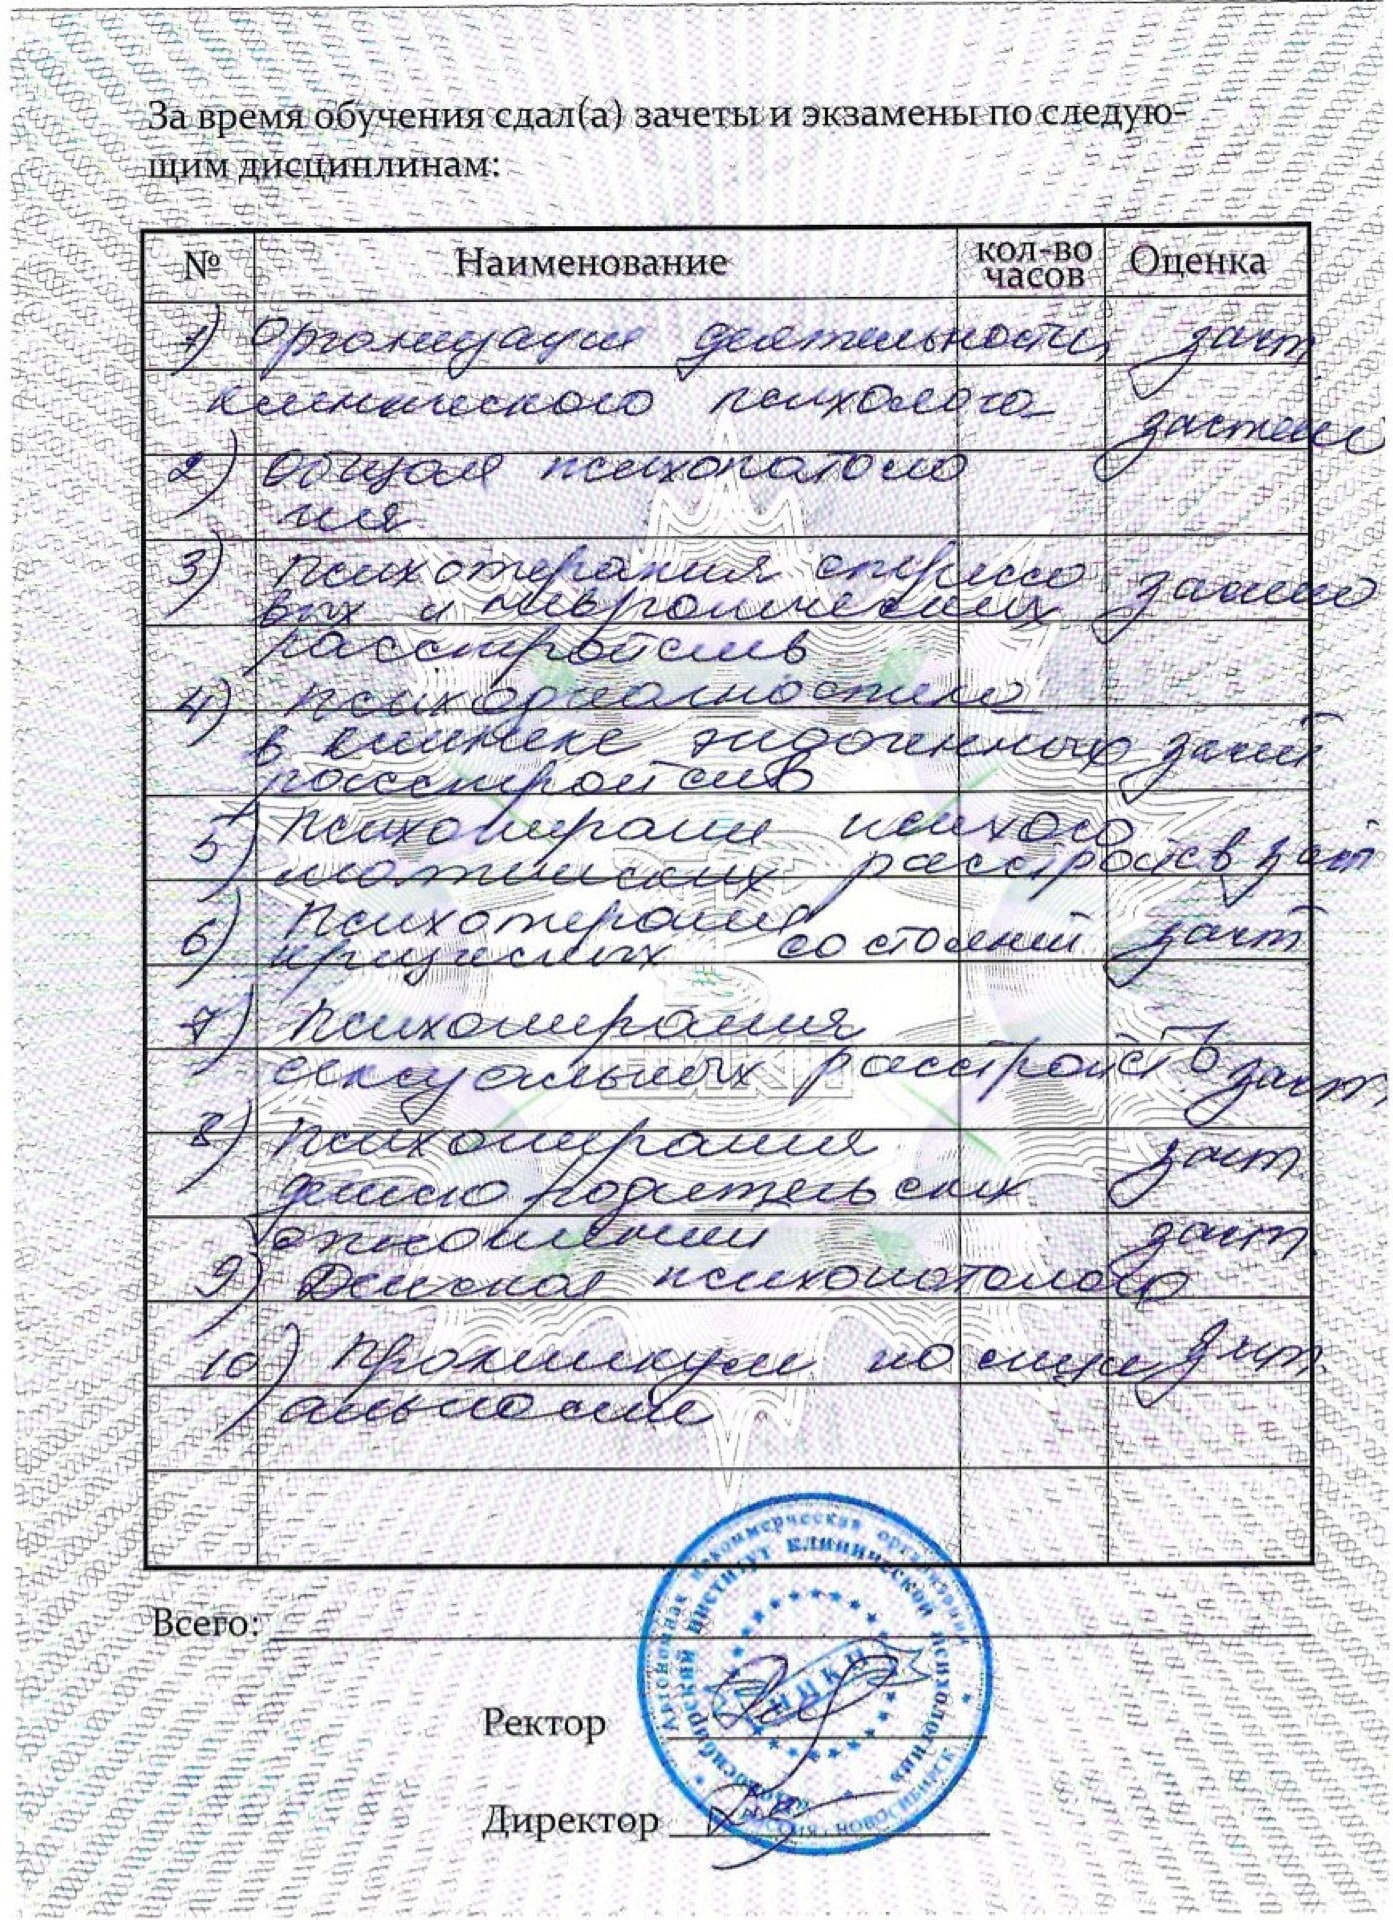 За время обучения сдал(а) зачеты и экзамены по следую-
щим дисциплинам:
№ Наименование кол-во часов Оценка
1) Организация деятельности зачт
клинического психолога
зачтено
2) Общая психопатоло
гия
3) Психотерапия стрессо зачтено
вых и невротических
расстройств
4) Психодиагностика
в клинике эндогенных зачт
расстройств
5) Психотерапия психосо
матических расстройств зачт
6) Психотерапия
кризисных состояний зачт
7) Психотерапия
сексуальных расстройств зачт
8) Психотерапия зачт.
детско родительских
отношений зачт
9) Детская психопатолог
10) Практикум по специ зачт.
альности
Всего:
Ректор
Директор
Автономная некоммерческая организация
Новосибирский институт клинической психологии
НИКП
РОССИЯ, НОВОСИБИРСК